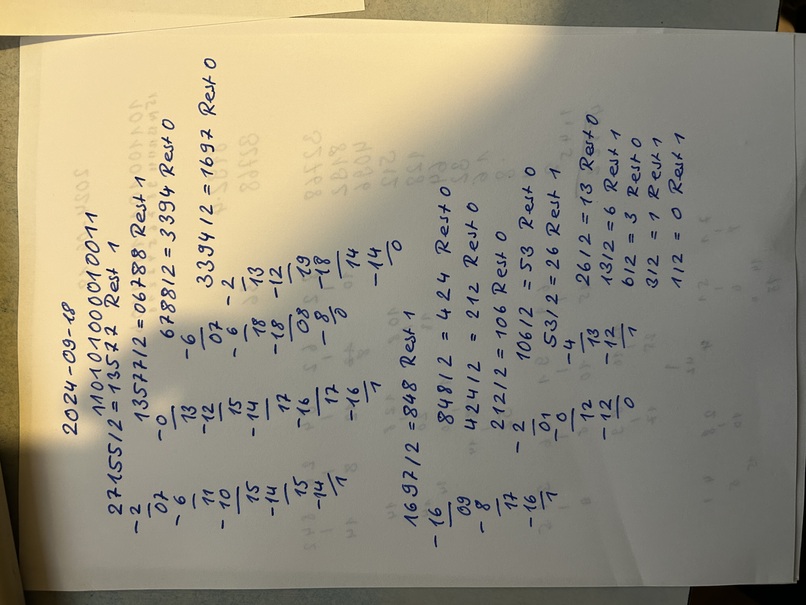 2024-09-18
110101000010011
27155/2 = 13577 Rest 1
-2
07
-6
11
-10
15
-14
15
-14
1
13577/2 = 06788 Rest 1
-0
13
-12
15
-14
17
-16
17
-16
1
6788/2 = 3394 Rest 0
-6
07
-6
18
-18
08
-8
0
3394/2 = 1697 Rest 0
-2
13
-12
19
-18
14
-14
0
1697/2 = 848 Rest 1
-16
09
-8
17
-16
1
848/2 = 424 Rest 0
424/2 = 212 Rest 0
212/2 = 106 Rest 0
-2
01
-0
12
-12
0
106/2 = 53 Rest 0
53/2 = 26 Rest 1
-4
13
-12
1
26/2 = 13 Rest 0
13/2 = 6 Rest 1
6/2 = 3 Rest 0
3/2 = 1 Rest 1
1/2 = 0 Rest 1